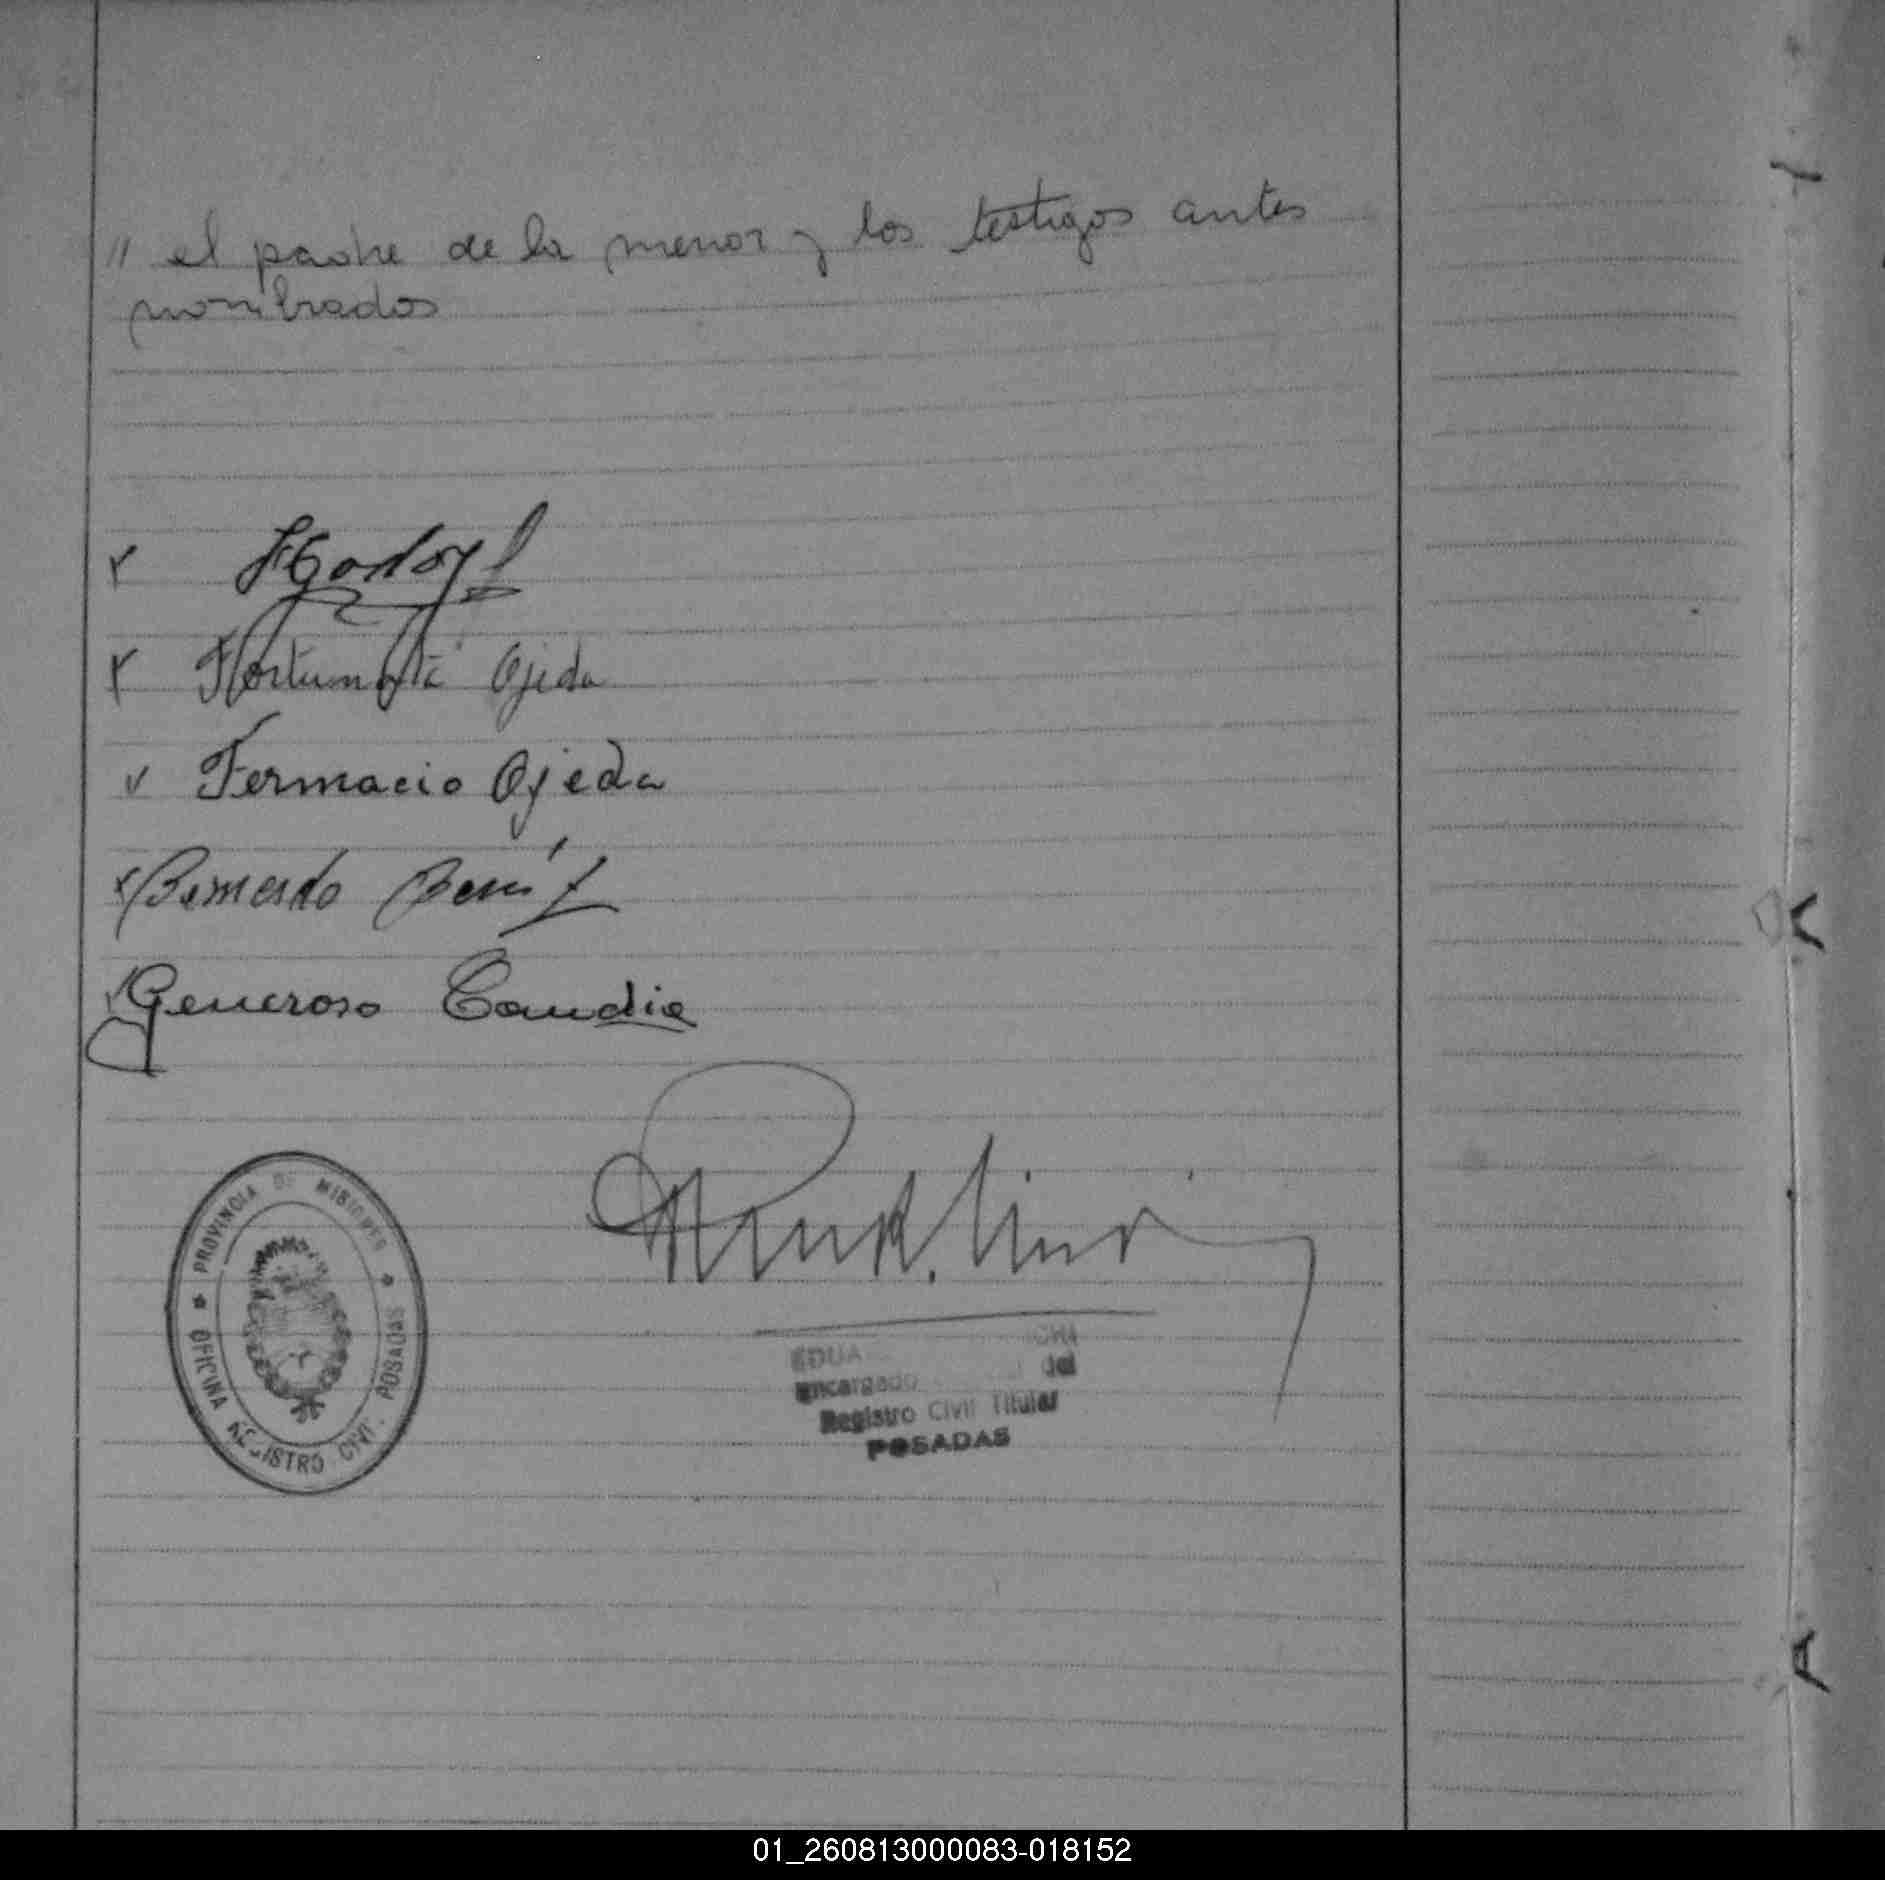 // el padre de la menor y los testigos antes
nombrados
HGodoy
Fortunata Ojeda
Fermacio Ojeda
Bernardo Beni
Generoso Candia
PROVINCIA DE MISIONES
OFICINA REGISTRO CIVIL POSADAS
EDUA CHI
Encargado del
Registro Civil Titular
POSADAS
01_260813000083-018152